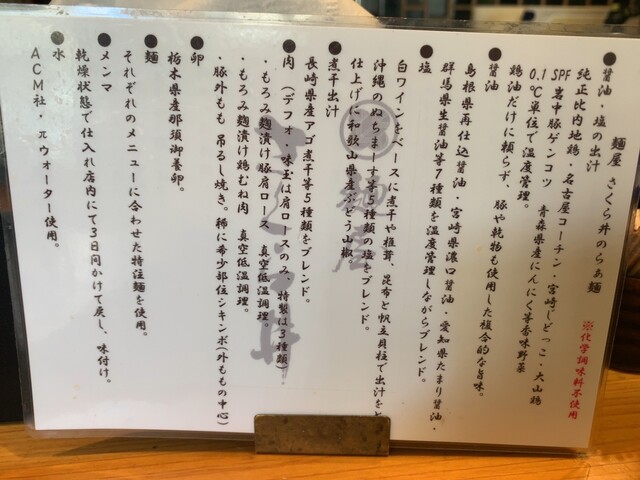 麺屋 さくら井のらぁ麺
※化学調味料不使用
●醤油・塩の出汁
純正比内地鶏・名古屋コーチン・宮崎じどっこ・大山鶏
SPF岩中豚ゲンコツ 青森県産にんにく等香味野菜
0.1℃単位で温度管理。
鶏油だけに頼らず、豚や乾物も使用した複合的な旨味。
●醤油
島根県再仕込醤油・宮崎県濃口醤油・愛知県たまり醤油・
群馬県生醤油等7種類を温度管理しながらブレンド。
●塩
白ワインをベースに煮干や椎茸、昆布と帆立貝柱で出汁をと
沖縄のぬちまーす等5種類の塩をブレンド。
仕上げに和歌山県産ぶどう山椒
●煮干出汁
長崎県産アゴ煮干等5種類をブレンド。
●肉 (デフォ・味玉は肩ロースのみ、特製は3種類)
・もろみ麹漬け豚肩ロース 真空低温調理。
・もろみ麹漬け鶏むね肉 真空低温調理。
・豚外もも 吊るし焼き。稀に希少部位シキンボ(外ももの中心)
●卵
栃木県産那須御養卵。
●麺
それぞれのメニューに合わせた特注麺を使用。
●メンマ
乾燥状態で仕入れ店内にて3日間かけて戻し、味付け。
●水
ACM社・πウォーター使用。
麺屋
さくら井